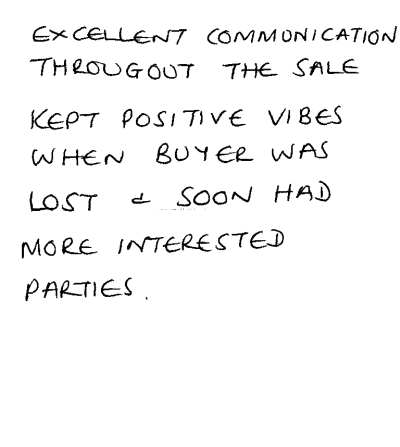 EXCELLENT COMMUNICATION
THROUGOUT THE SALE
KEPT POSITIVE VIBES
WHEN BUYER WAS
LOST & SOON HAD
MORE INTERESTED
PARTIES.